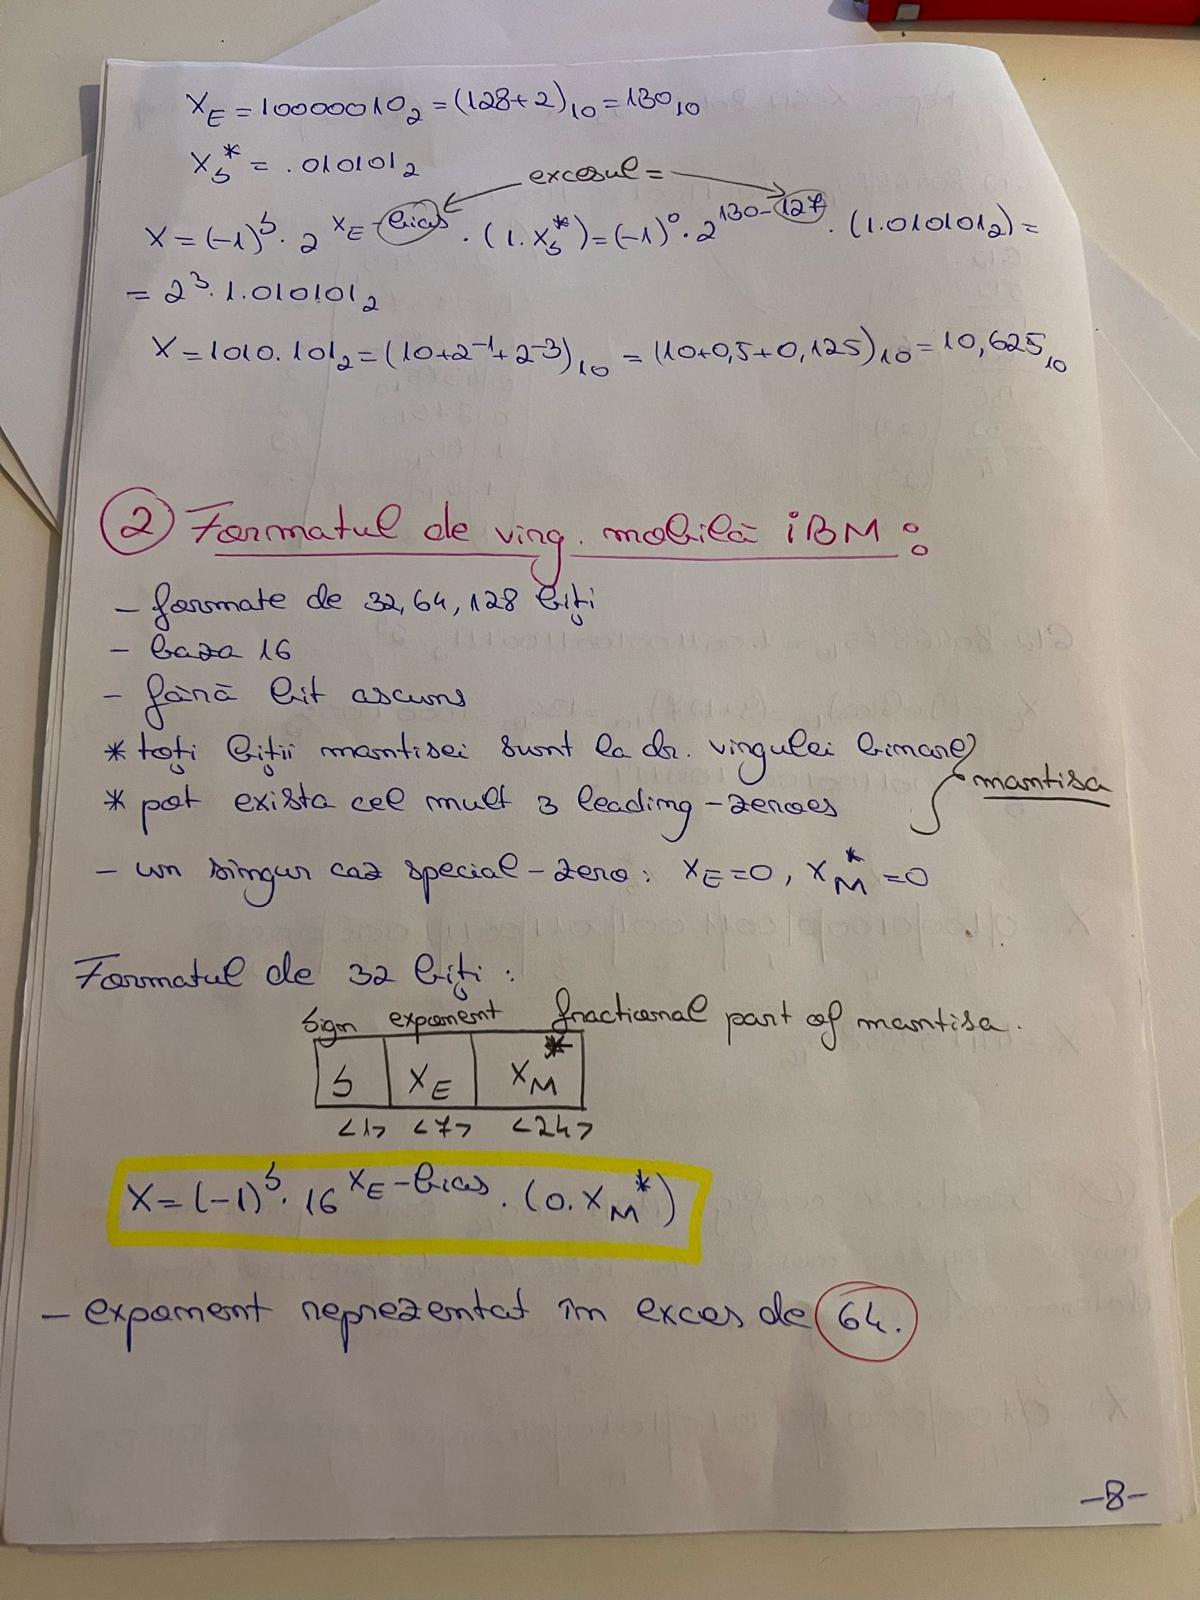 X_E = 10000010₂ = (128+2)₁₀ = 130₁₀
X_S* = .010101₂
excesul =
X = (-1)^S · 2^(X_E - bias) · (1.X_S*) = (-1)^0 · 2^(130-127) · (1.010101₂) =
= 2³ · 1.010101₂
X = 1010.101₂ = (10+2⁻¹+2⁻³)₁₀ = (10+0,5+0,125)₁₀ = 10,625₁₀
② Formatul de virg. mobilă IBM:
- formate de 32, 64, 128 biți
- baza 16
- fără bit ascuns
* toți biții mantisei sunt la dr. virgulei binare
* pot exista cel mult 3 leading-zeroes
mantisa
- un singur caz special - zero: X_E = 0, X_M* = 0
Formatul de 32 biți:
Sign exponent fractional part of mantisa.
S X_E X_M*
<1> <7> <24>
X = (-1)^S · 16^(X_E - bias) · (0.X_M*)
- exponent reprezentat în exces de 64.
-8-